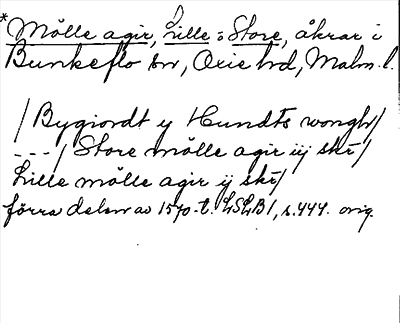 *Mölle agir, Lille o Store, åkrar i
Bunkeflo sn, Oxie hd, Malm. l.
/Bygiordt y Hundts wongh/
---/ Store mölle agir iij skr/
Lille mölle agir ij skr/
förra delen av 1570-t. LSLB1, s.444. orig.